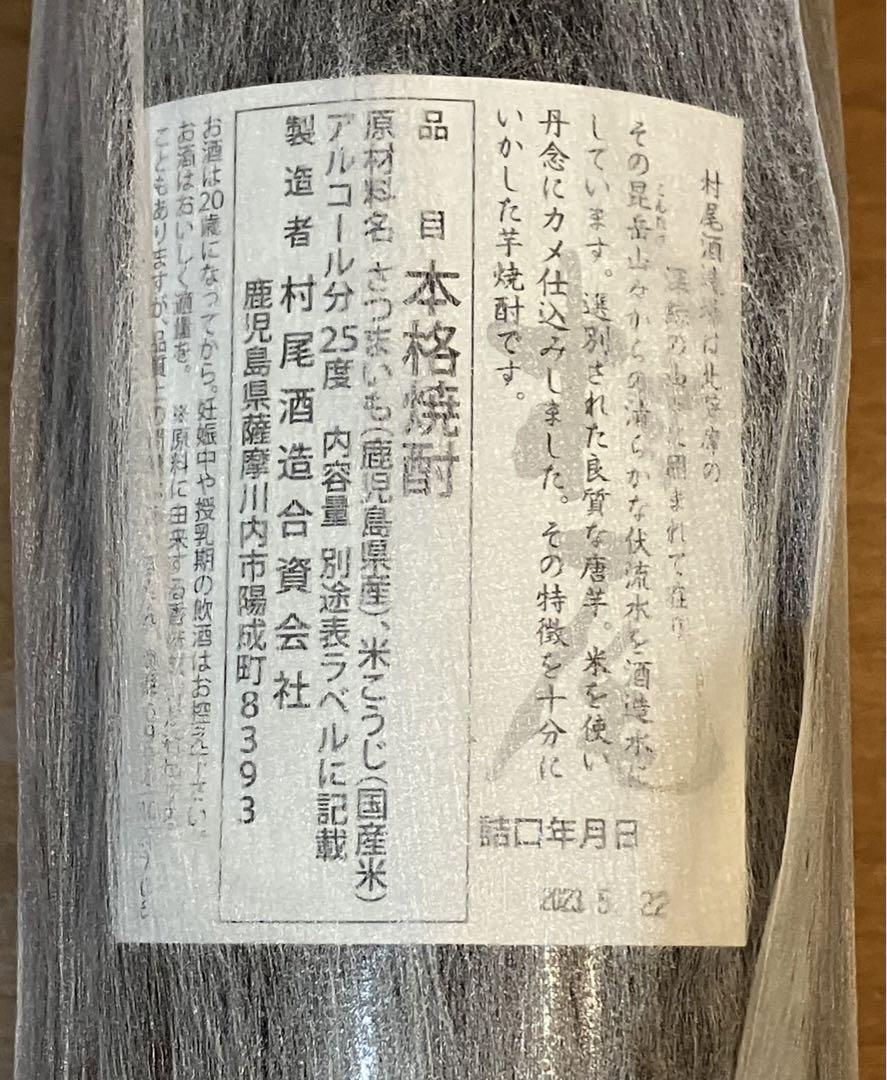 村尾酒造場は北薩摩の
の山々に囲まれて在り
その昆岳山々からの清らかな伏流水を酒造水に
しています。選別された良質な唐芋。米を使い
丹念にカメ仕込みしました。その特徴を十分に
いかした芋焼酎です。
詰口年月日
2023. 5. 22
品目 本格焼酎
原材料名 さつまいも(鹿児島県産)、米こうじ(国産米)
アルコール分25度 内容量 別途表ラベルに記載
製造者 村尾酒造合資会社
鹿児島県薩摩川内市陽成町8393
お酒は20歳になってから。妊娠中や授乳期の飲酒はお控え下さい。
お酒はおいしく適量を。 ※原料に由来する
こともありますが、品質上の